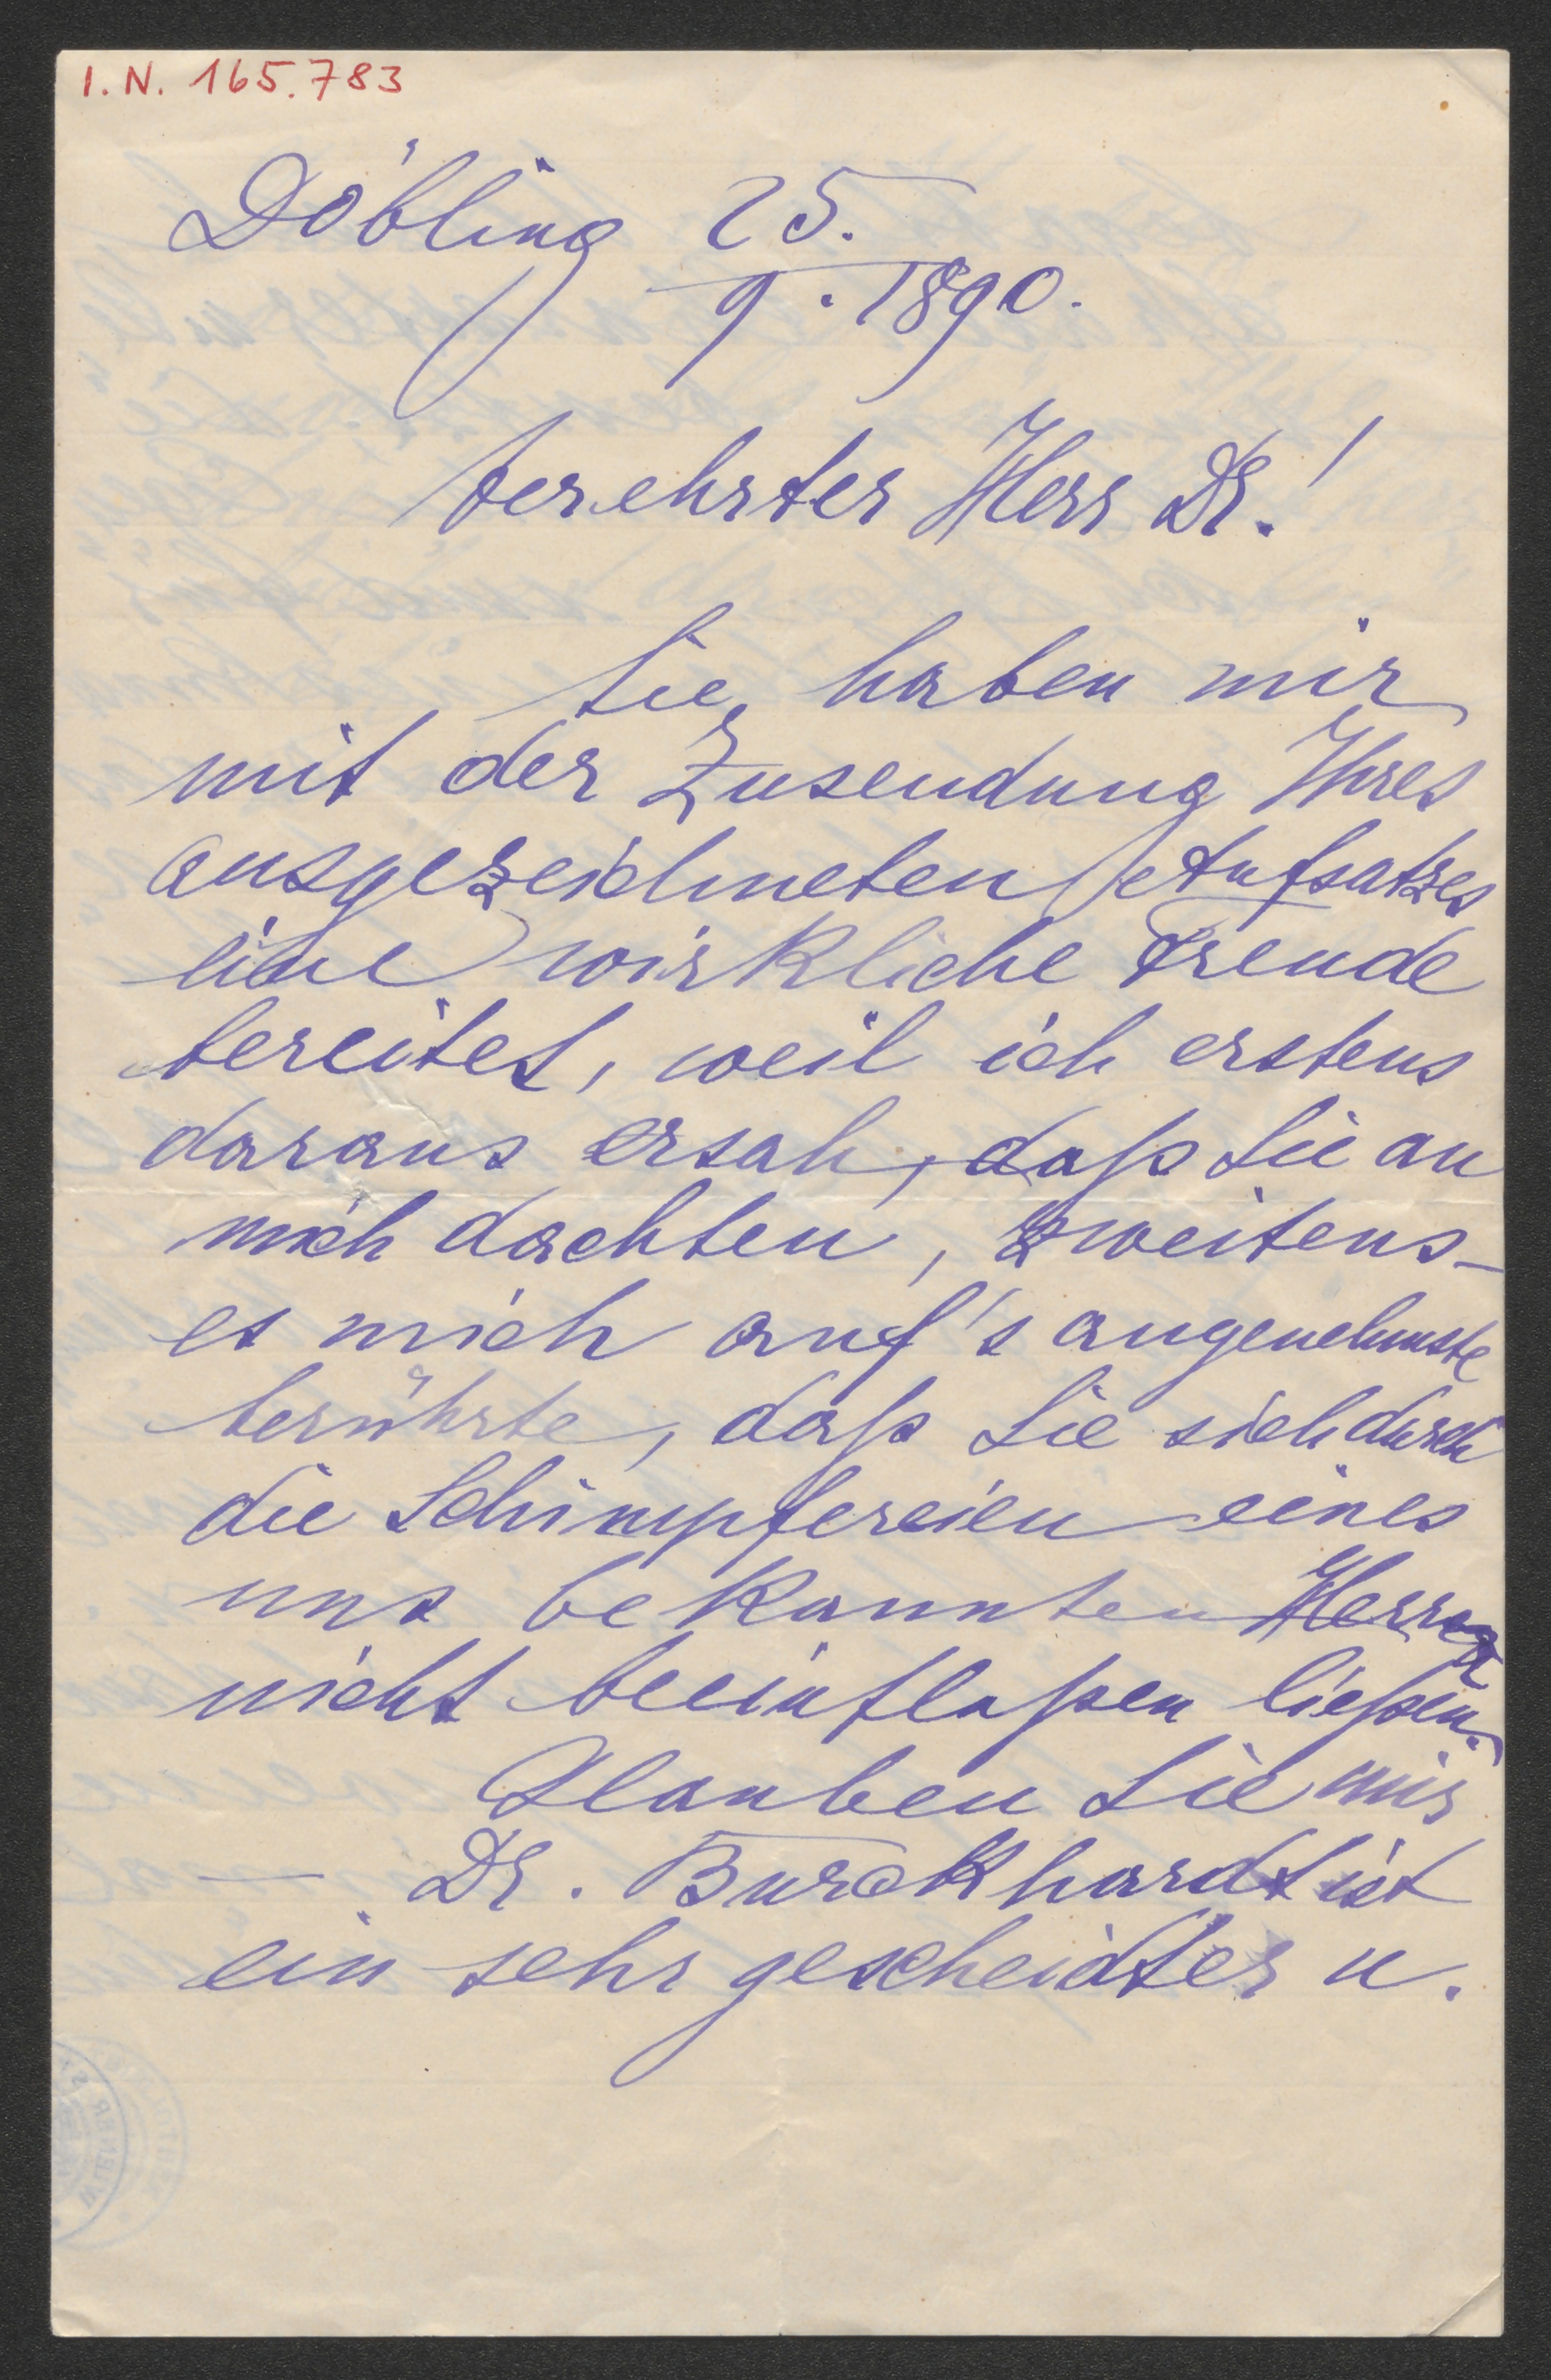 I.N. 165.783
Döbling 25.
9. 1890.
Verehrter Herr Dr.!
Sie haben mir
mit der Zusendung Ihres
ausgezeichneten Aufsatzes
eine wirkliche Freude
bereitet, weil ich erstens
daraus ersah, daß Sie an
mich dachten, zweitens –
es mich auf's angenehmste
berührte, daß Sie sich durch
die Schimpfereien eines
uns bekannten Herren
nicht beeinflaßen ließen.
Glauben Sie mir
– Dr. Burckhardt ist
ein sehr gescheidter u.